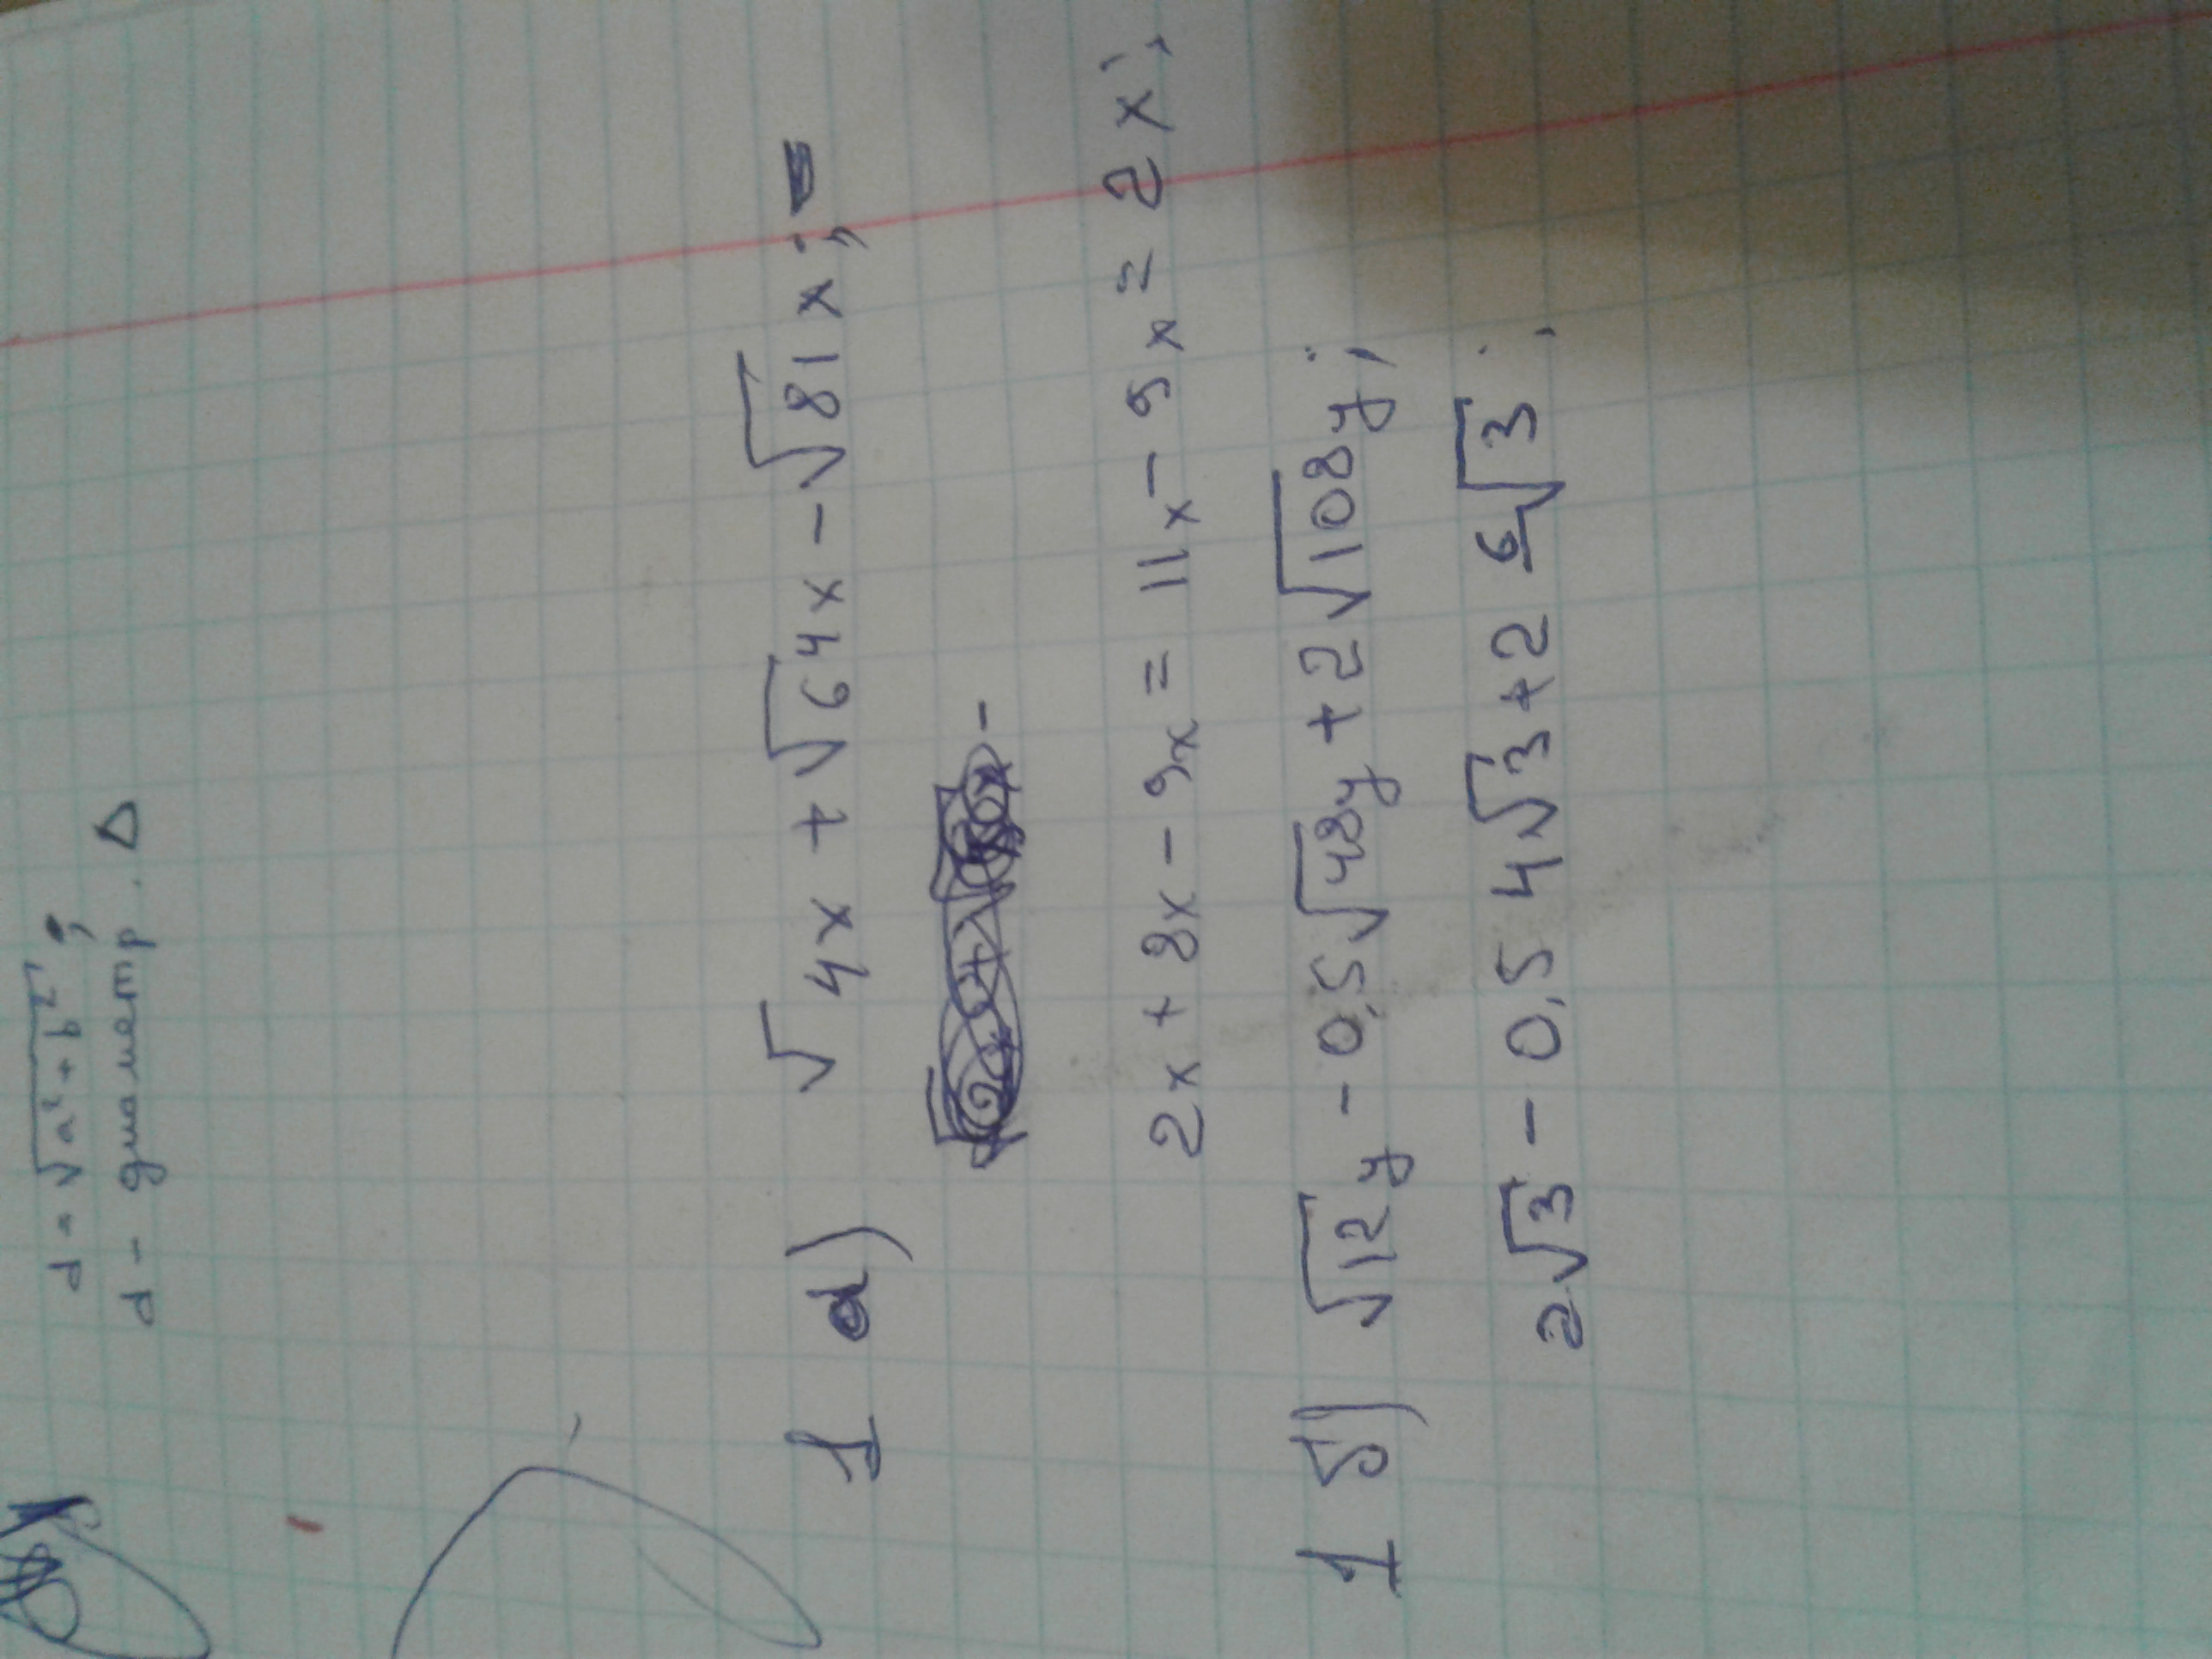 d = √a²+b²;
d - диаметр. Δ
1 а) √4x + √64x - √81x;
2x + 8x - 9x = 11x - 9x = 2x;
1 б) √12y - 0,5√48y + 2√108y;
2√3 - 0,5 4√3 + 2 6√3;